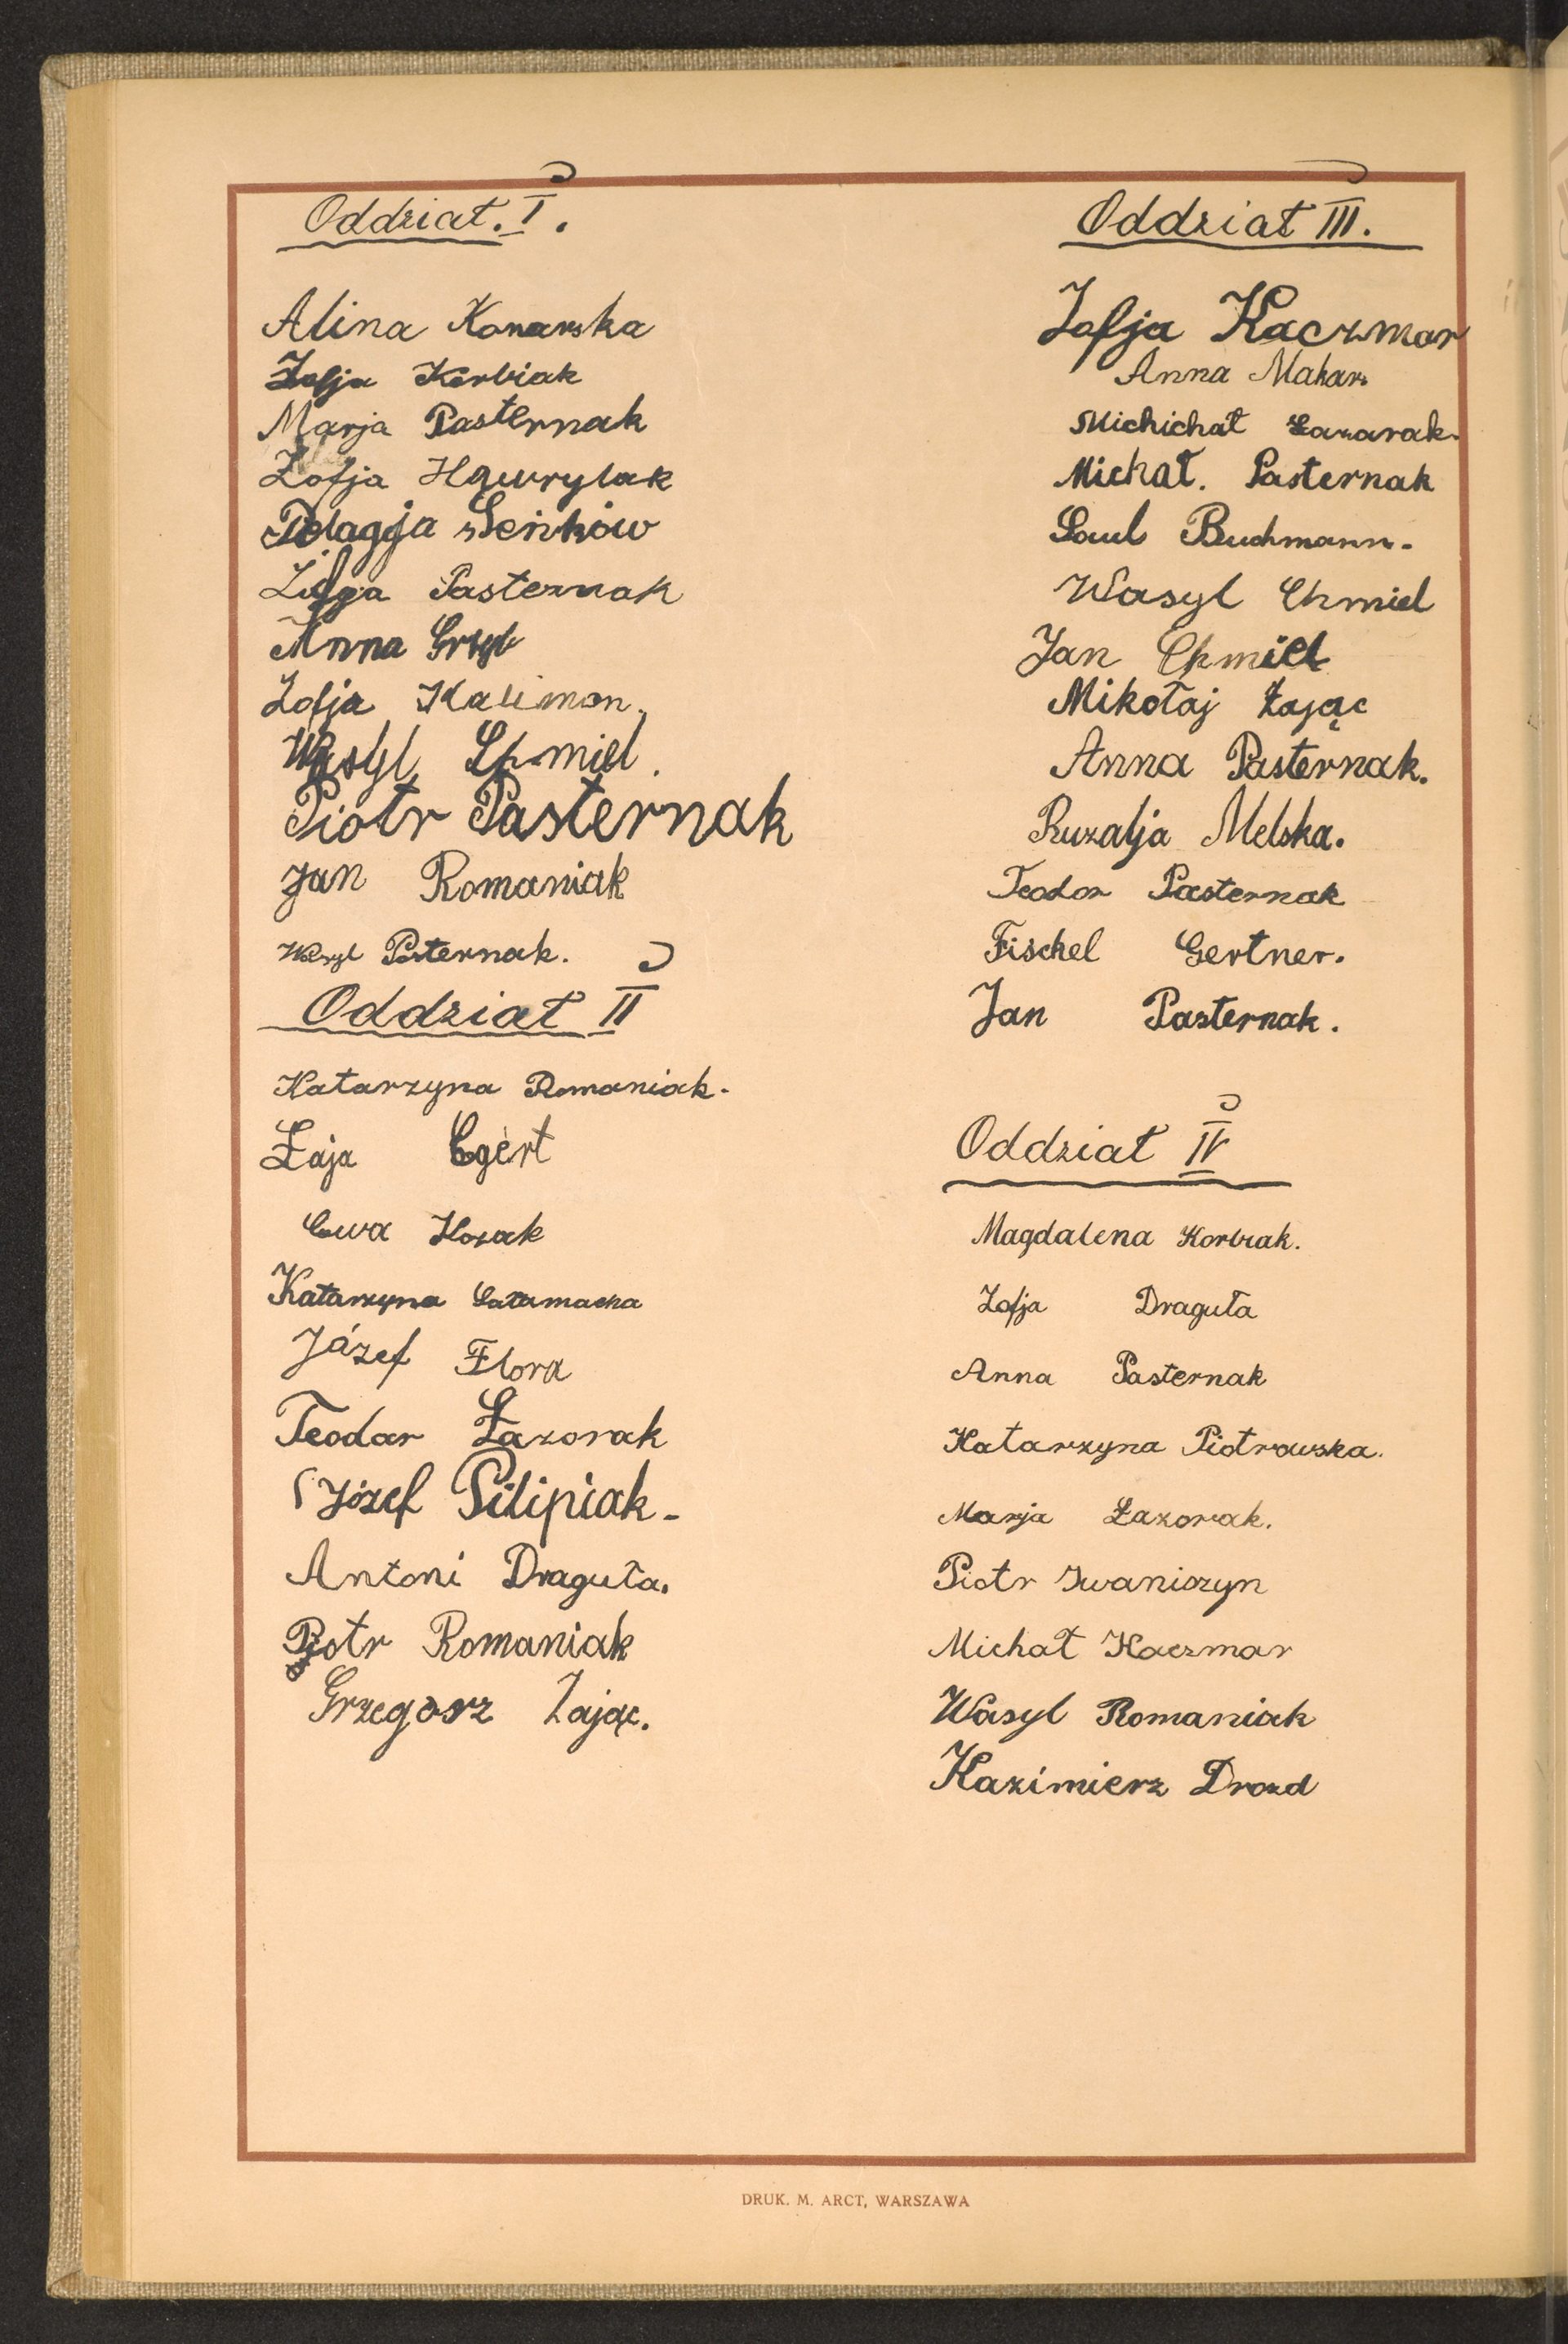 Oddział. I.
Alina Konarska
Zofja Korbiak
Marja Pasternak
Zofja Hawrylak
Pelagja Seńków
Zofja Pasternak
Anna Gryb
Zofja Kalimon.
Wasyl Chmiel.
Piotr Pasternak
Jan Romaniak
Wasyl Pasternak.
Oddział II
Katarzyna Romaniak.
Łaja Egert
Ewa Horak
Katarzyna Całamacha
Józef Flora
Teodor Łazorak
Józef Pilipiak-
Antoni Draguła.
Piotr Romaniak
Grzegorz Zając.
Oddział III.
Zofja Kaczmar
Anna Makar
Michichał Łazarak.
Michał. Pasternak
Saul Buchmann.
Wasyl Chmiel
Jan Chmiel
Mikołaj Zając
Anna Pasternak.
Ruzalja Melska.
Teodor Pasternak
Fischel Gertner.
Jan Pasternak.
Oddział IV
Magdalena Korbiak.
Zofja Draguła
Anna Pasternak
Katarzyna Piotrowska.
Marja Łazorak.
Piotr Iwaniszyn
Michał Kaczmar
Wasyl Romaniak
Kazimierz Drozd
DRUK. M. ARCT, WARSZAWA